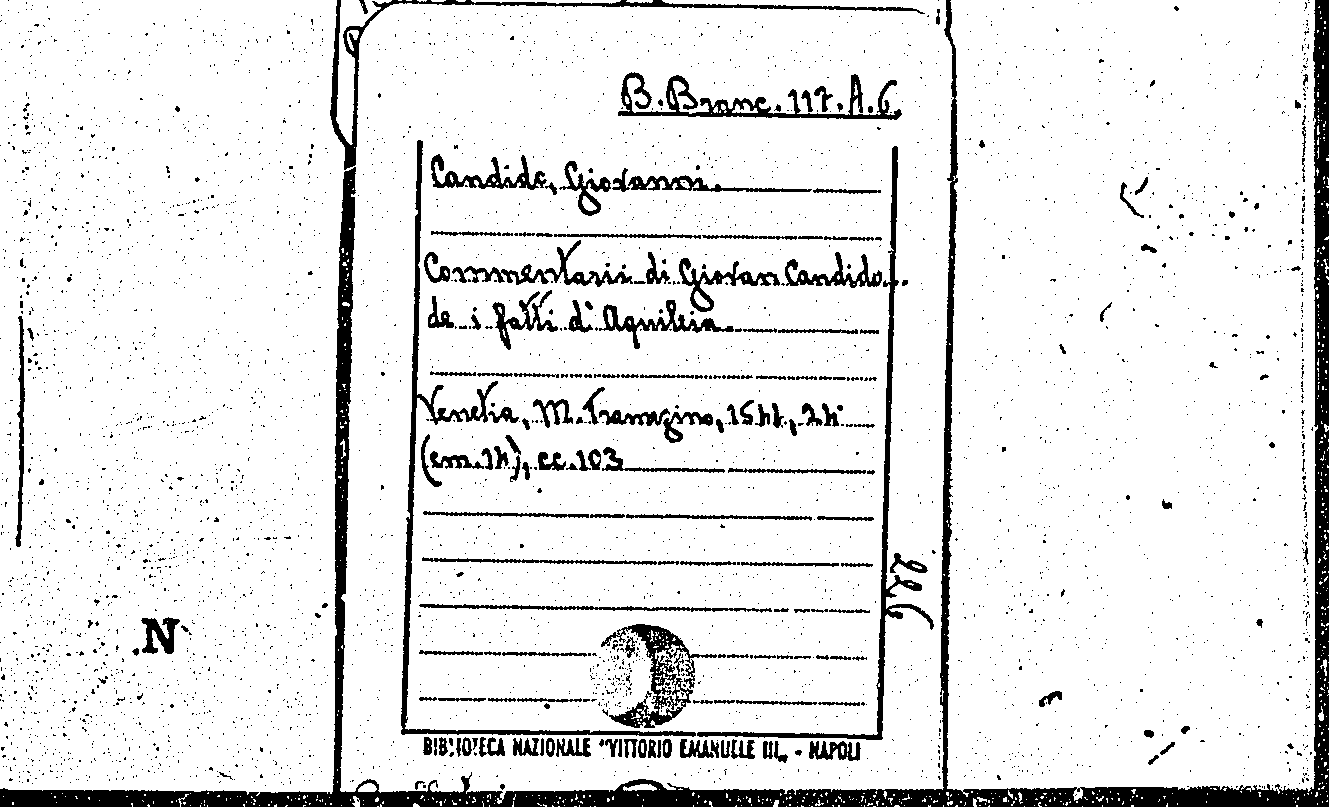 B. Branc. 117. A. 6.
Candido, Giovanni.
Commentarii di Giovan Candido...
de i fatti d'Aquileia.
Venetia, M. Tramezino, 1544, 24°
(cm. 14), cc. 103
226
.N
BIBLIOTECA NAZIONALE "VITTORIO EMANUELE III„ - NAPOLI